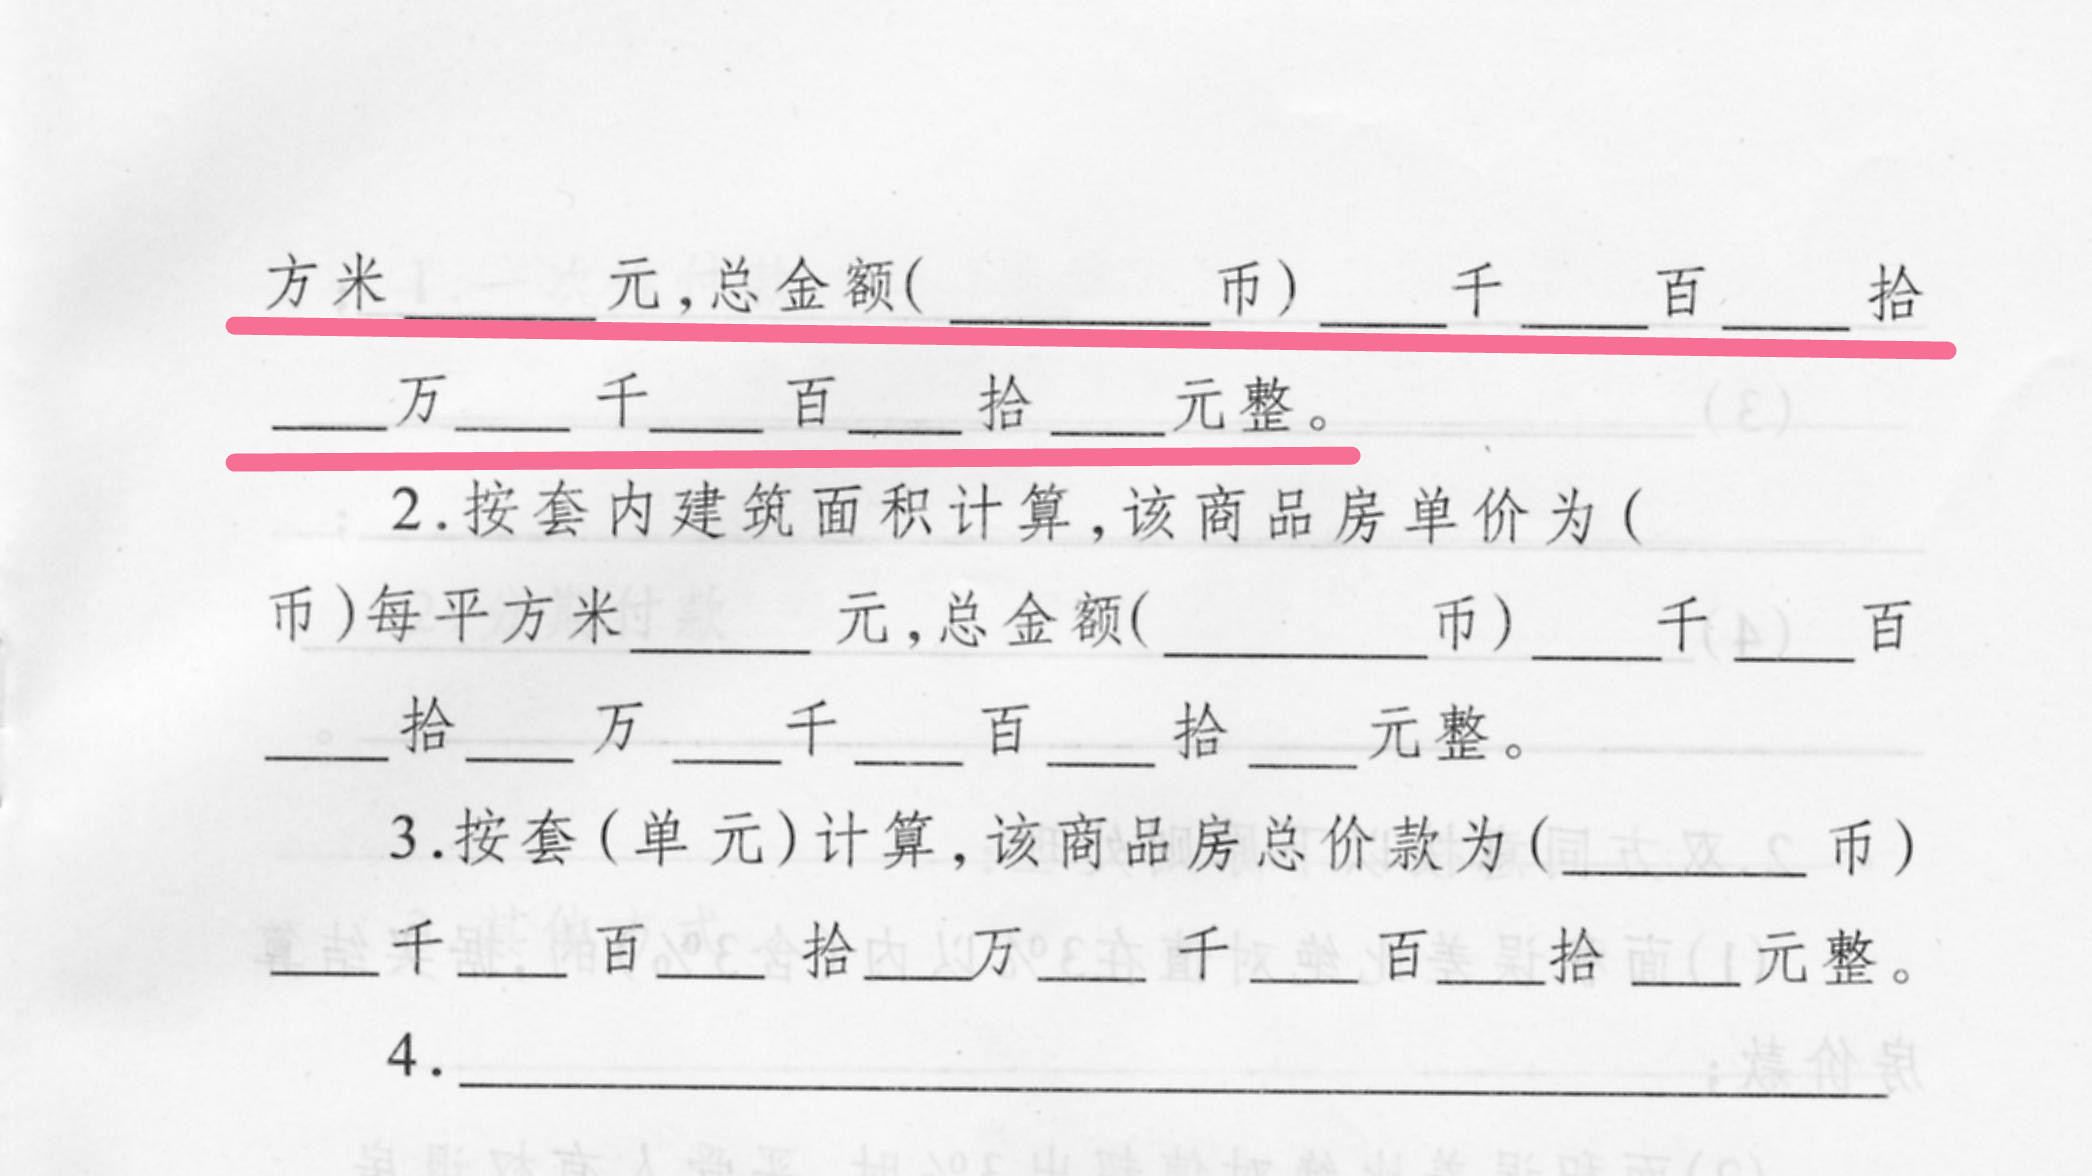 方米______元,总金额(________币)____千____百____拾
____万____千____百____拾____元整。
2.按套内建筑面积计算,该商品房单价为(
币)每平方米______元,总金额(________币)____千____百
____拾____万____千____百____拾____元整。
3.按套(单元)计算,该商品房总价款为(________币)
____千____百____拾____万____千____百____拾____元整。
4.____________________